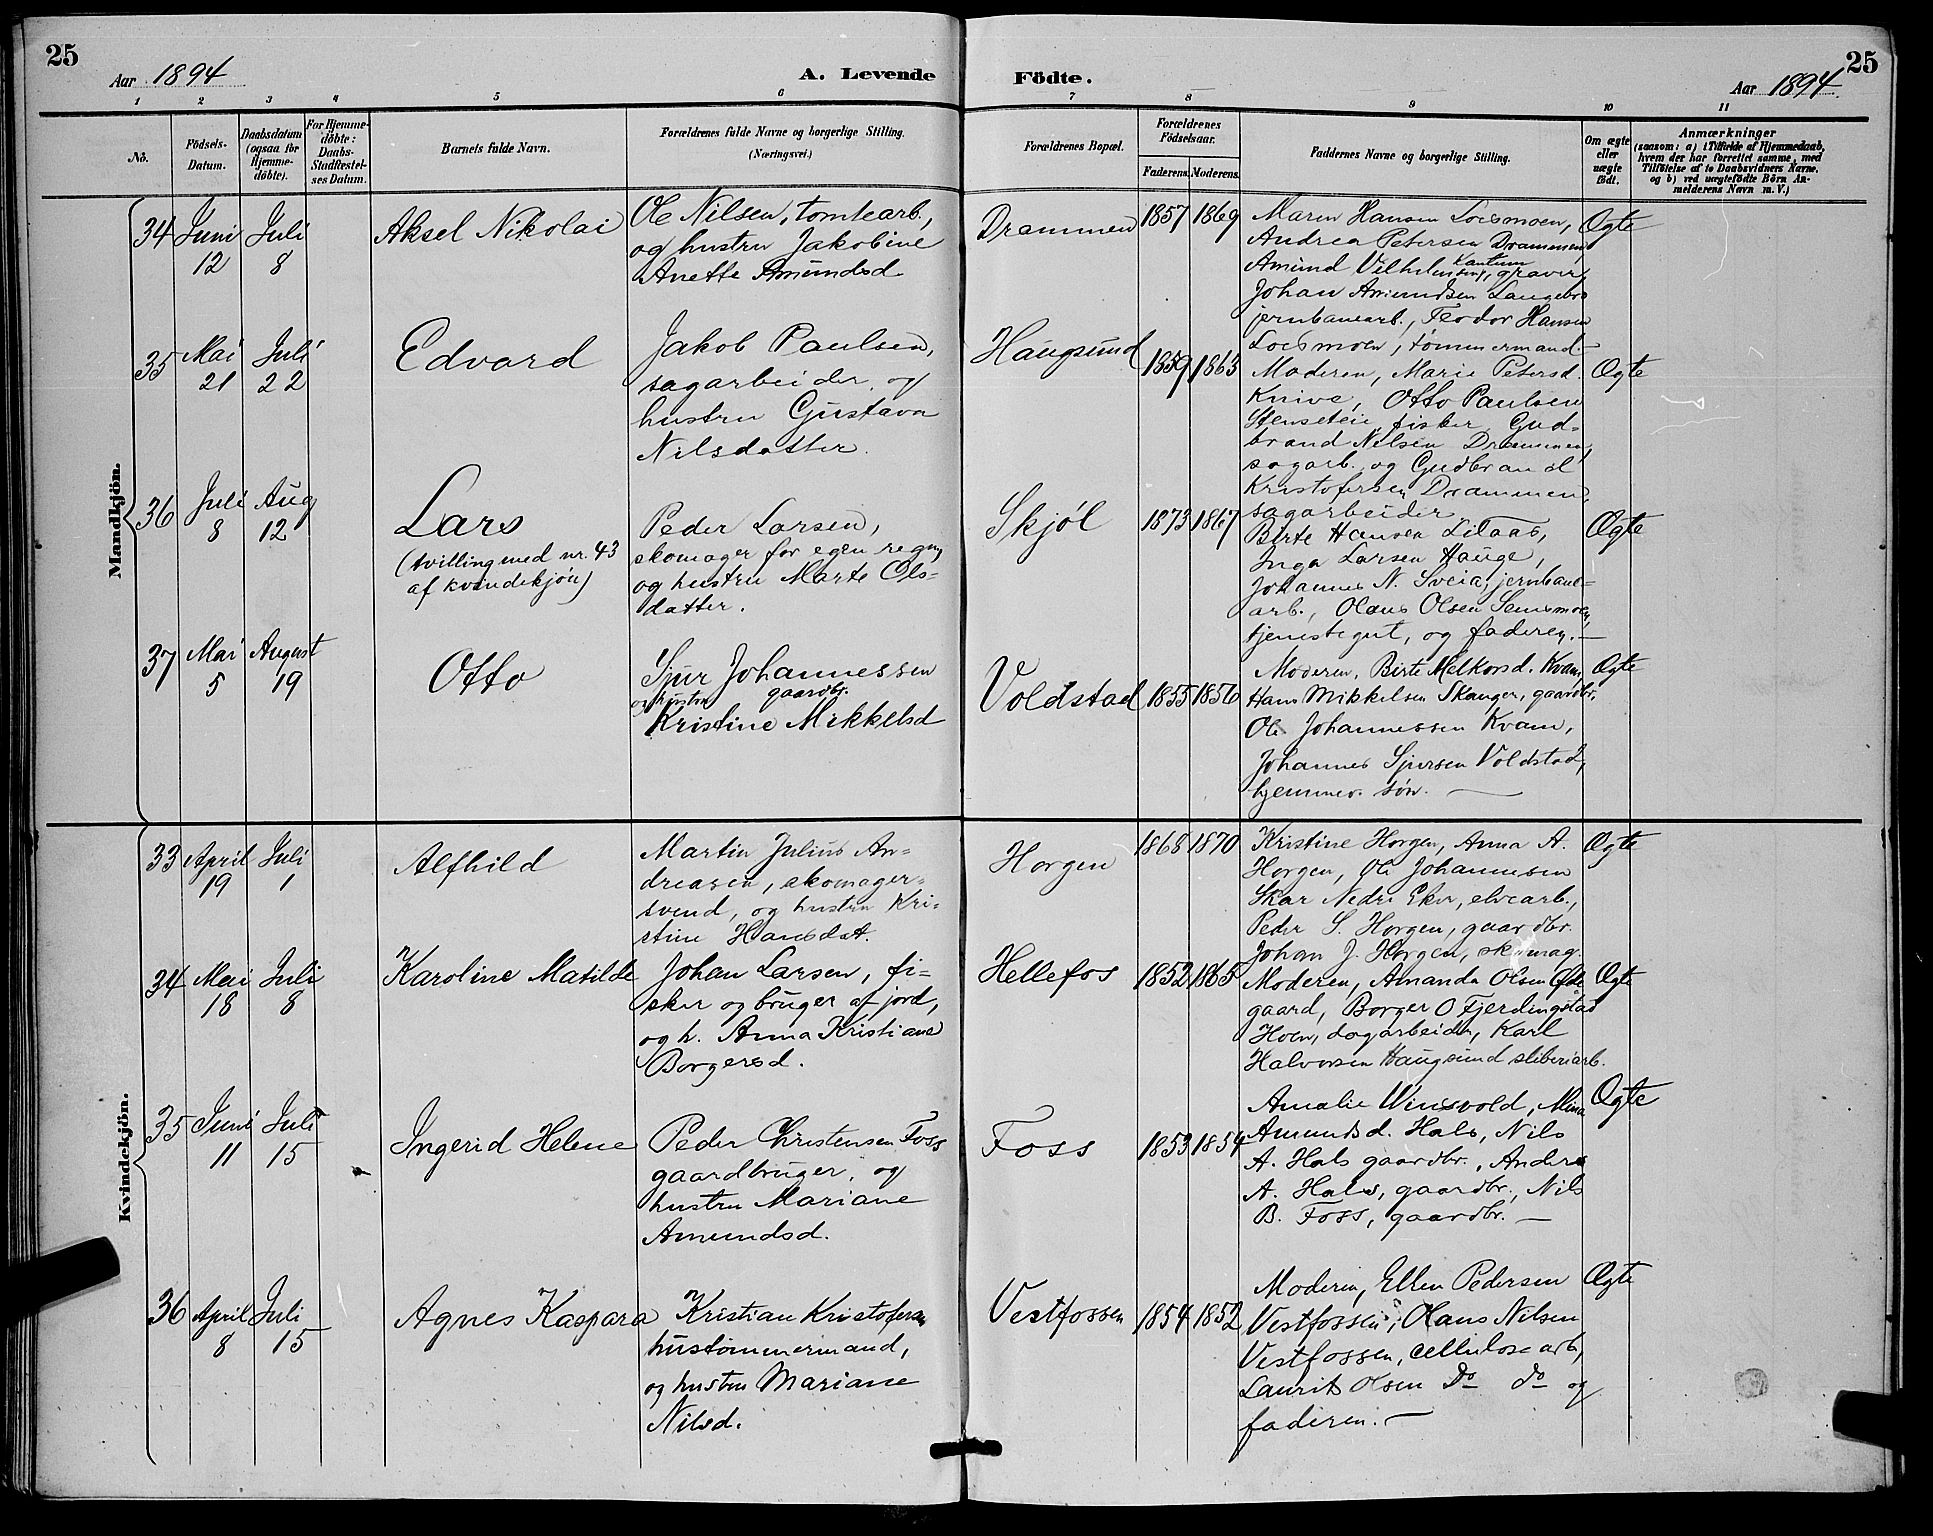 25
Aar 1894
A. Levende
1 2 3 4 5 6
No.
Födsels-
Datum.
Daabsdatum
(ogsaa for
Hjemme-
döbte).
For Hjemme-
döbte:
Daabs-
Stadfæstel-
ses Datum.
Barnets fulde Navn.
Forældrenes fulde Navne og borgerlige Stilling.
(Næringsvei.)
Födte.
25
Aar 1894.
7 8 9 10 11
Forældrenes Bopæl.
Forældrenes
Födselsaar.
Faderens. Moderens.
Faddernes Navne og borgerlige Stilling.
Om ægte
eller
uægte
født.
Anmærkninger
(saasom: a) i Tilfælde af Hjemmedaab,
hvem der har forrettet samme, med
Tilföielse af to Daabsvidners Navne,
og b) ved uægtefödte Börn An-
melderens Navn m. V.)
Mandkjön.
34
Juni
12
Juli
8
Aksel Nikolai
Ole Nilsen, tomtearb.,
og hustru Jakobine
Anette Amundsd.
Drammen
1857 1869
Maren Hansen Loesmoen,
Andrea Petersen Drammen,
Amund Vilhelmsen, gravør,
Johan Amundsen Langebro
jernbanearb., Teodor Hansen
Loesmoen, tømmermand.
Ægte
35
Mai
21
Juli
22
Edvard
Jakob Paulsen,
sagarbeider, og
hustru Gustava
Nilsdatter.
Haugsund
1859 1863
Moderen, Marie Petersd.
Knive, Otto Paulsen
Stenseteie, fisker, Gud-
brand Nilsen Drammen,
sagarb., og Gudbrand
Kristofersen Drammen,
sagarbeider
Ægte
36
Juli
8
Aug
12
Lars
(tvilling med nr. 43
af kvindekjön)
Peder Larsen,
skomager for egen regn,
og hustru Marte Ols-
datter.
Skjöl
1873 1867
Birte Hansen Lilaas,
Inga Larsen Hauge,
Johannes N. Sveia, jernbane-
arb., Olaus Olsen Semsmoen,
tjenestegut, og faderen.
Ægte
37
Mai
5
August
19
Otto
Sjur Johannessen
og hustru gaardbr.
Kristine Mikkelsd
Voldstad
1855 1856
Moderen, Birte Melkorsd. Kvam,
Hans Mikkelsen Skanger, gaardbr.
Ole Johannessen Kvam,
Johannes Sjursen Voldstad,
hjemmev. søn.
Ægte
Kvindekjön.
33
April
19
Juli
1
Alfhild
Martin Julius An-
dreasen, skomager-
svend, og hustru Kri-
stine Hansdat.
Horgen
1868 1870
Kristine Horgen, Anna A.
Horgen, Ole Johannesen
Skar Nedre Eker, elvearb.,
Peder S. Horgen, gaardbr.
Johan J. Horgen, skomag.
Ægte
34
Mai
18
Juli
8
Karoline Matilde
Johan Larsen, fi-
sker og bruger af jord,
og h. Anna Kristiane
Borgersd.
Hellefos
1852 1865
Moderen, Amanda Olsen Øde
gaard, Borger O Fjerdingstad
Hoen, dagarbeider, Karl
Halvorsen Haugsund sliberiarb.
Ægte
35
Juni
11
Juli
15
Ingerid Helene
Peder Christensen Foss
gaardbruger, og
hustru Mariane
Amundsd.
Foss
1853 1854
Amalie Winsvold, Mina
Amundsd. Hals, Nils
A. Hals gaardbr., Anders
A. Hals, gaardbr., Nils
B. Foss, gaardbr.
Ægte
36
April
8
Juli
15
Agnes Kaspara
Kristian Kristofersen
hustømmermand,
og hustru Mariane
Nilsd.
Vestfossen
1854 1852
Moderen, Ellen Pedersen
Vestfossen, Olaus Nilsen
Vestfossen, cellulosearb,
Laurits Olsen Do do og
faderen.
Ægte